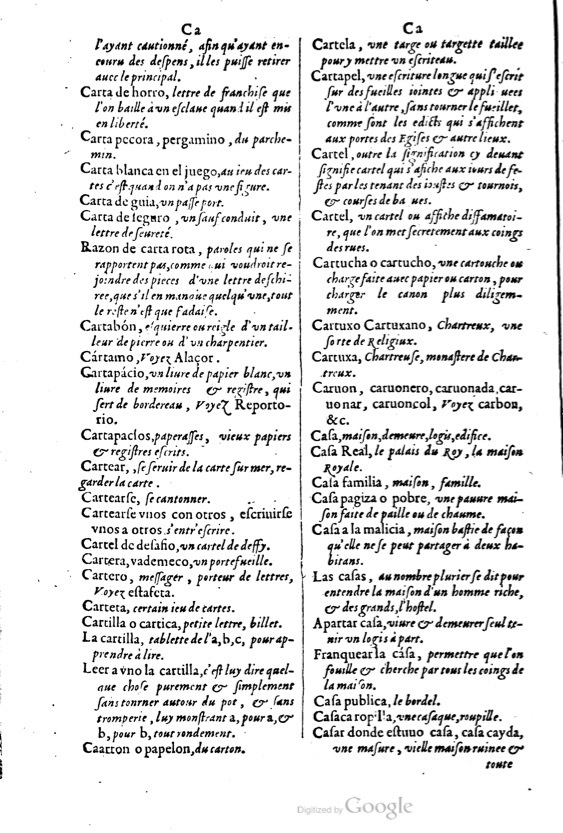 Ca
l'ayant cautionné, afin qu'ayant en-
couru des despens, il les puisse retirer
auec le principal.
Carta de horro, lettre de franchise que
l'on baille à vn esclaue quand il est mis
en liberté.
Carta pecora, pergamino, du parche-
min.
Carta blanca en el juego, au ieu des car-
tes c'est quand on n'a pas vne figure.
Carta de guia, vn passe port.
Carta de seguro, vn sauf conduit, vne
lettre de seureté.
Razon de carta rota, paroles qui ne se
rapportent pas, comme qui voudroit re-
joindre des pieces d'vne lettre deschi-
rée, que s'il en manque quelqu'vne, tout
le reste n'est que fadaise.
Cartabón, esquierre ou reigle d'vn tail-
leur de pierre ou d'vn charpentier.
Cártamo, Voyez Alaçor.
Cartapácio, vn liure de papier blanc, vn
liure de memoires & registre, qui
sert de bordereau, Voyez Reporto-
rio.
Cartapacios, paperasses, vieux papiers
& registres escrits.
Cartear, se seruir de la carte sur mer, re-
garder la carte.
Cartearse, se cantonner.
Cartearse vnos con otros, escriuirse
vnos a otros s'entr'escrire.
Cartel de desafio, vn cartel de deffy.
Cartera, vademeco, vn portefueille.
Cartero, messager, porteur de lettres,
Voyez estafeta.
Carteta, certain ieu de cartes.
Cartilla o cartica, petite lettre, billet.
La cartilla, tablette de l'a, b, c, pour ap-
prendre à lire.
Leer a vno la cartilla, c'est luy dire quel-
que chose purement & simplement
sans tourner autour du pot, & sans
tromperie, luy monstrant a, pour a, &
b, pour b, tout rondement.
Caarton o papelon, du carton.
Ca
Cartela, vne targe ou targette taillee
pour y mettre vn escriteau.
Cartapel, vne escriture longue qui s'escrit
sur des fueilles iointes & appliquees
l'vne à l'autre, sans tourner le fueillet,
comme sont les edicts qui s'affichent
aux portes des Egises & autre lieux.
Cartel, outre la signification cy deuant
signifie cartel qui s'afiche aux iours de fe-
stes par les tenant des iustes & tournois,
& courses de ba ues.
Cartel, vn cartel ou affiche diffamatoi-
re, que l'on met secretement aux coings
des rues.
Cartucha o cartucho, vne cartouche ou
charge faite auec papier ou carton, pour
charger le canon plus diligem-
ment.
Cartuxo Cartuxano, Chartreux, vne
sorte de Religiux.
Cartuxa, Chartreuse, monastere de Char-
treux.
Caruon, caruonero, caruonada, car-
uonar, caruoncol, Voyez carbon,
&c.
Casa, maison, demeure, logis, edifice.
Casa Real, le palais du Roy, la maison
Royale.
Casa familia, maison, famille.
Casa pagiza o pobre, vne pauure mai-
son faite de paille ou de chaume.
Casa a la malicia, maison bastie de façon
qu'elle ne se peut partager à deux ha-
bitans.
Las casas, au nombre plurier se dit pour
entendre la maison d'vn homme riche,
& des grands, l'hostel.
Apartar casa, viure & demeurer seul te-
nir vn logis à part.
Franquear la cása, permettre que l'on
fouille & cherche par tous les coings de
la maison.
Casa publica, le bordel.
Casaca ropilla, vne casaque, roupille.
Casar donde estuuo casa, casa cayda,
vne masure, vielle maison ruinee &
toute
Digitized by Google